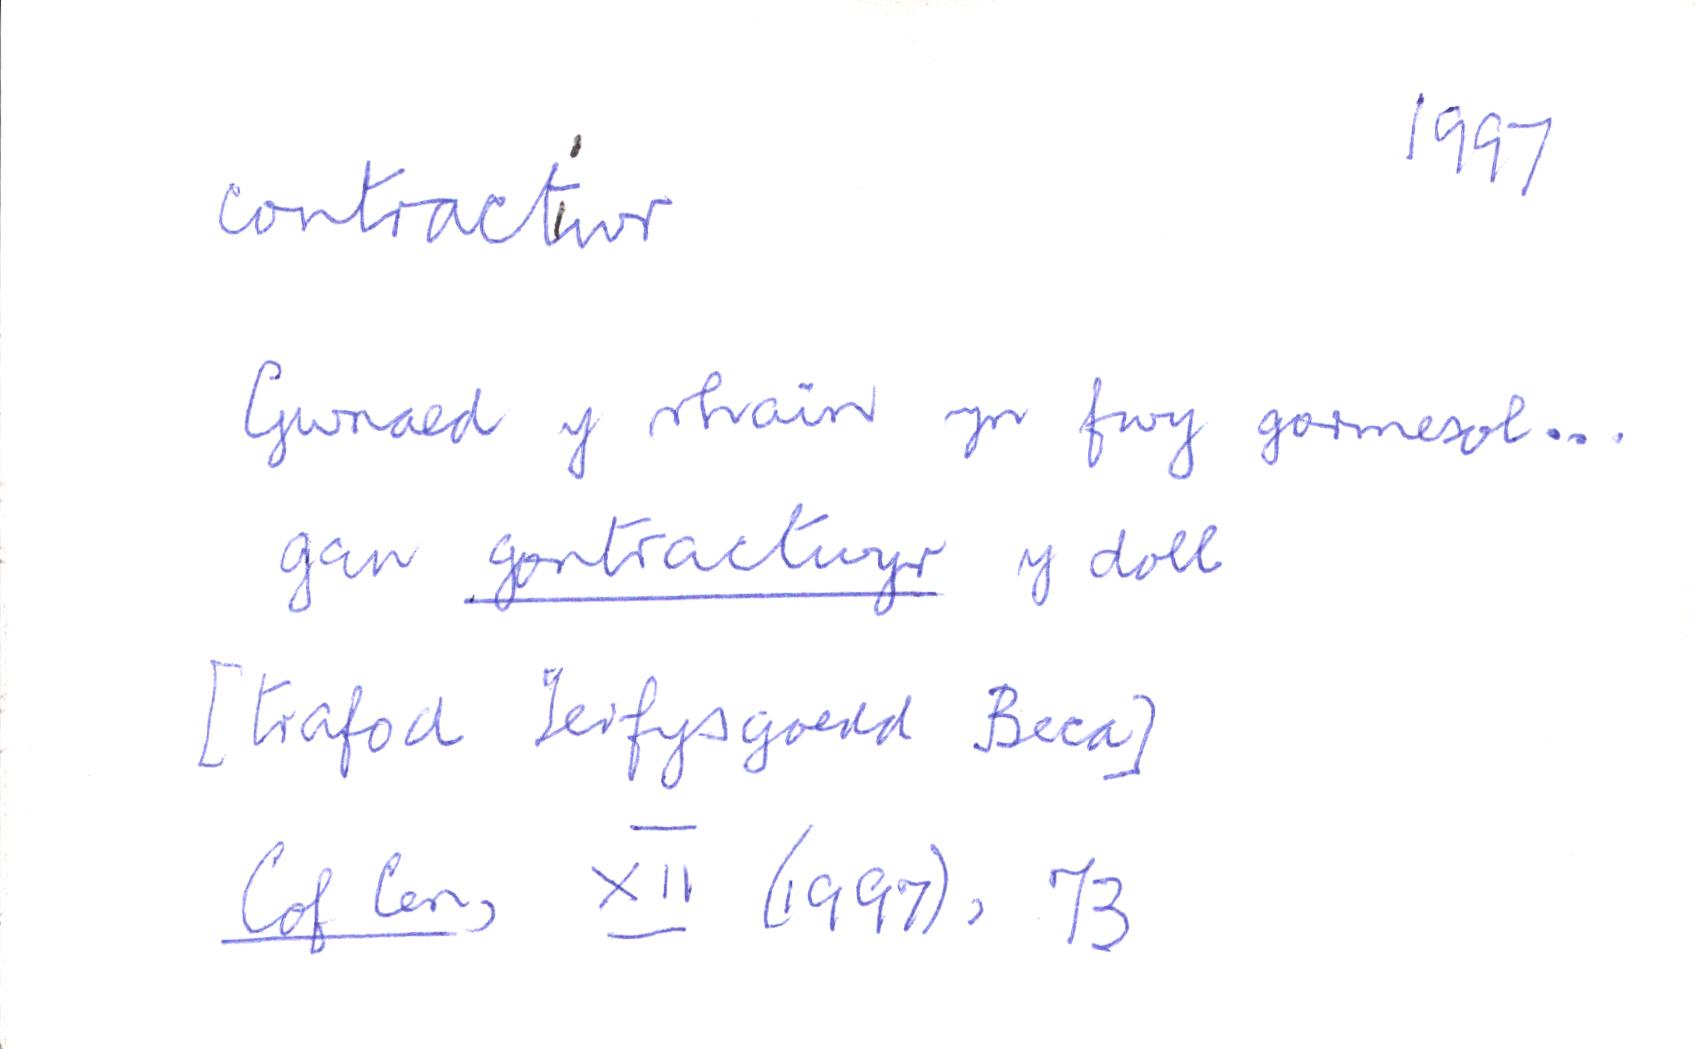 1997
contractiwr
Gwnaed y rhain yn fwy gormesol...
gan gontractwyr y doll
[trafod Terfysgoedd Beca]
Cof Cen, XII (1997), 73